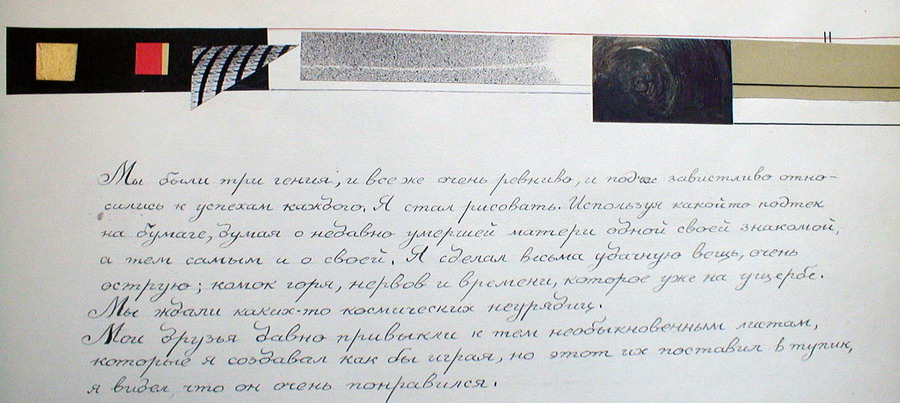 н
Мы были три гения, и все же очень ревниво, и подчас завистливо отно-
сились к успехам каждого. Я стал рисовать. Используя какойто подтек
на бумаге, думая о недавно умершей матери одной своей знакомой,
а тем самым и о своей. Я сделал весьма удачную вещь, очень
острую; комок горя, нервов и времени, которое уже на ущербе.
Мы ждали каких-то космических неурядиц.
Мои друзья давно привыкли к тем необыкновенным листам,
которые я создавал как бы играя, но этот их поставил в тупик,
я видел, что он очень понравился.